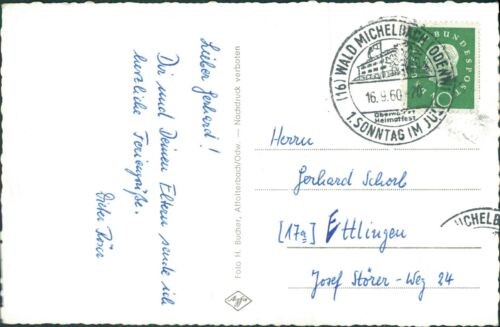 Lieber Gerhard!
Dir und Deinen Eltern sende ich
herzliche Feriengrüße.
Dieter
Foto H. Bucher, Affolterbach/Odw. — Nachdruck verboten
Agfa
(16) WALD MICHELBACH (ODENW)
16.9.60
Heimatfest
1. SONNTAG IM JULI
BUNDESPOST
10
Herrn
Gerhard Schorb
[17a] Ettlingen
Josef Störer-Weg 24
MICHELB